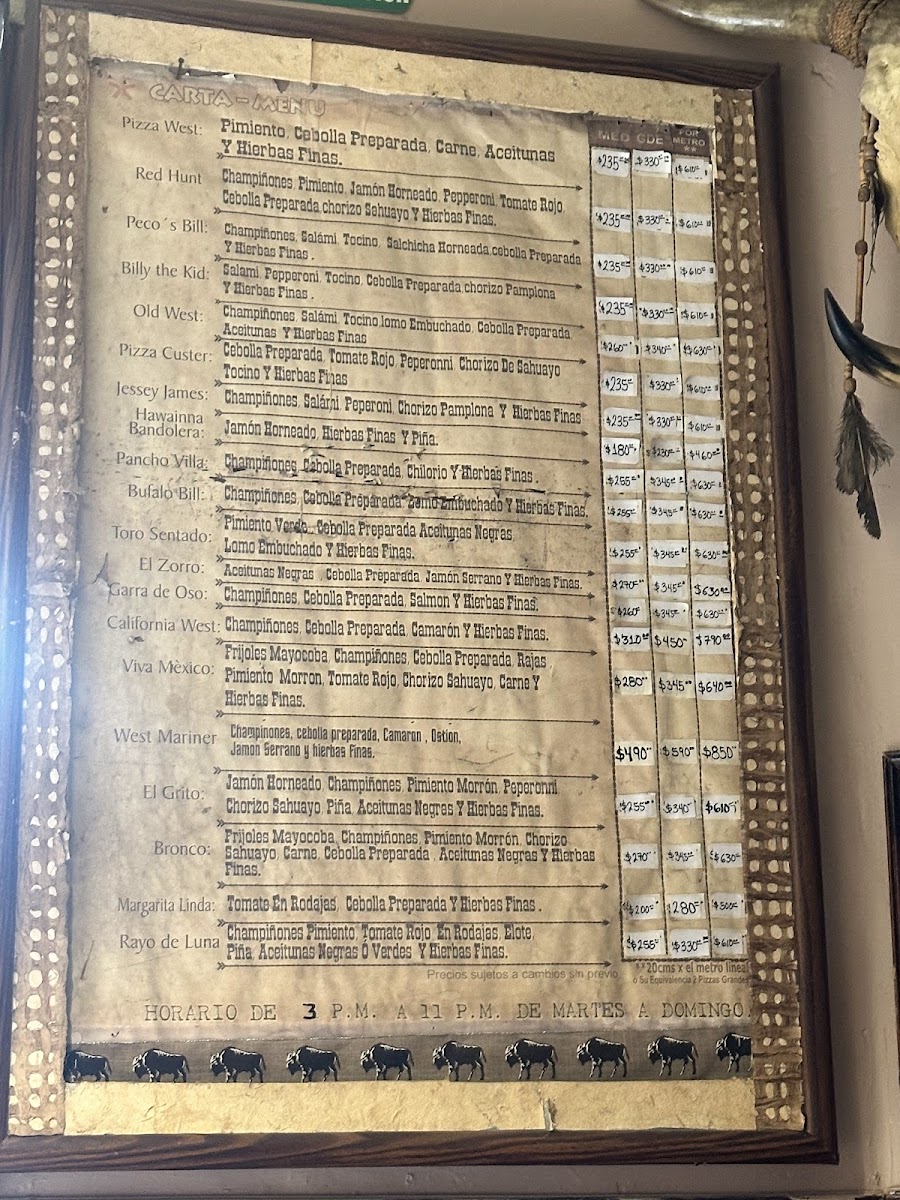 CARTA-MENU
MED GDE POR METRO **
Pizza West: Pimiento, Cebolla Preparada, Carne, Aceitunas
Y Hierbas Finas. $235 $330 $610
Red Hunt Champiñones, Pimiento, Jamón Horneado, Pepperoni, Tomate Rojo,
Cebolla Preparada,chorizo Sahuayo Y Hierbas Finas. $235 $330 $610
Peco´s Bill: Champiñones, Salámi, Tocino, Salchicha Horneada,cebolla Preparada
Y Hierbas Finas . $235 $330 $610
Billy the Kid: Salami, Pepperoni, Tocino, Cebolla Preparada,chorizo Pamplona
Y Hierbas Finas . $235 $330 $610
Old West: Champiñones, Salámi, Tocino,lomo Embuchado, Cebolla Preparada,
Aceitunas Y Hierbas Finas $260 $340 $630
Pizza Custer: Cebolla Preparada, Tomate Rojo, Peperonni, Chorizo De Sahuayo
Tocino Y Hierbas Finas $235 $330 $610
Jessey James: Champiñones, Salámi, Peperoni, Chorizo Pamplona Y Hierbas Finas $235 $330 $610
Hawainna
Bandolera: Jamón Horneado, Hierbas Finas Y Piña. $180 $230 $460
Pancho Villa: Champiñones, Cebolla Preparada, Chilorio Y Hierbas Finas . $255 $345 $630
Bufalo Bill: Champiñones, Cebolla Preparada, Lomo Embuchado Y Hierbas Finas. $255 $345 $630
Toro Sentado: Pimiento Verde, Cebolla Preparada Aceitunas Negras,
Lomo Embuchado Y Hierbas Finas. $255 $345 $630
El Zorro: Aceitunas Negras , Cebolla Preparada, Jamón Serrano Y Hierbas Finas. $270 $345 $630
Garra de Oso: Champiñones, Cebolla Preparada, Salmon Y Hierbas Finas. $260 $345 $630
California West: Champiñones, Cebolla Preparada, Camarón Y Hierbas Finas. $310 $450 $790
Viva Mèxico: Frijoles Mayocoba, Champiñones, Cebolla Preparada, Rajas ,
Pimiento Morron, Tomate Rojo, Chorizo Sahuayo, Carne Y
Hierbas Finas. $280 $345 $640
West Mariner Champinones, cebolla preparada, Camaron , Ostion,
Jamon Serrano y hierbas Finas. $490 $590 $850
El Grito: Jamón Horneado, Champiñones, Pimiento Morrón, Peperonni,
Chorizo Sahuayo, Piña, Aceitunas Negres Y Hierbas Finas. $255 $340 $610
Bronco: Frijoles Mayocoba, Champiñones, Pimiento Morrón, Chorizo
Sahuayo, Carne, Cebolla Preparada , Aceitunas Negras Y Hierbas
Finas. $270 $345 $630
Margarita Linda: Tomate En Rodajas, Cebolla Preparada Y Hierbas Finas . $200 $280 $500
Rayo de Luna Champiñones Pimiento, Tomate Rojo En Rodajas, Elote,
Piña, Aceitunas Negras O Verdes Y Hierbas Finas. $255 $330 $610
Precios sujetos a cambios sin previo
**20cms x el metro lineal
o Su Equivalencia 2 Pizzas Grandes
HORARIO DE 3 P.M. A 11 P.M. DE MARTES A DOMINGO.